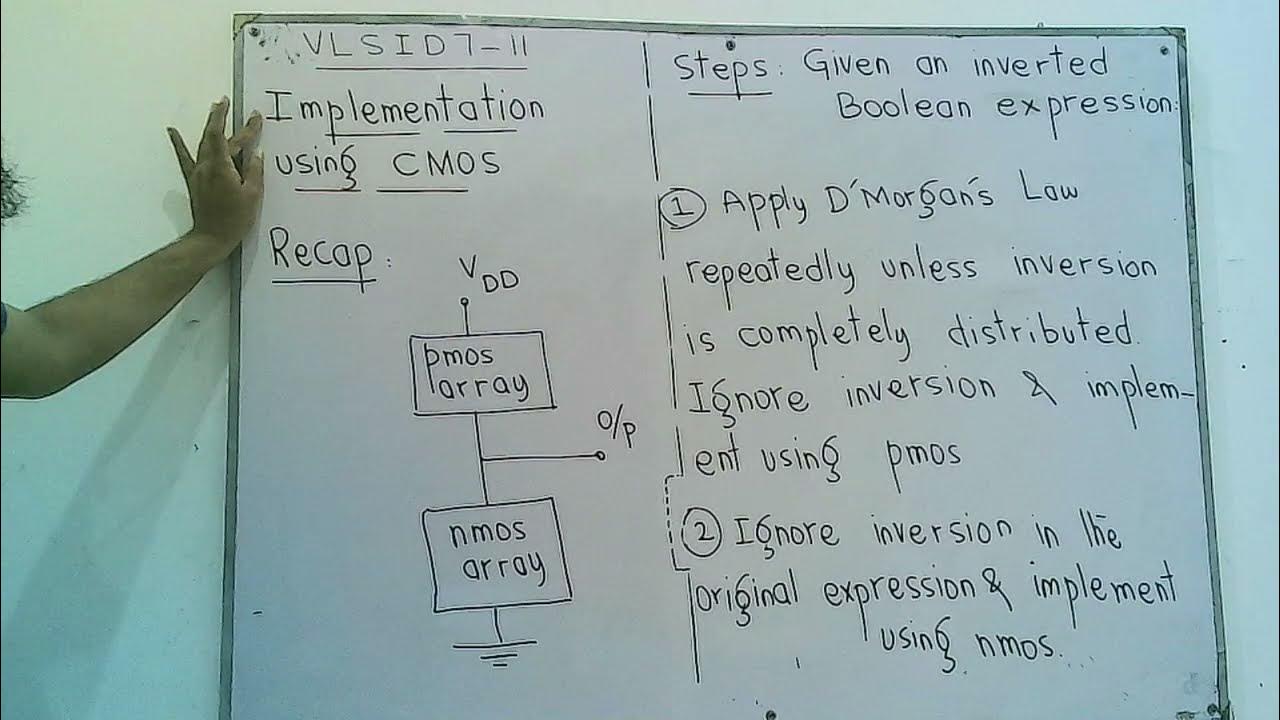 VLSID7-11
Implementation
using CMOS
Recap:
VDD
pmos
array
O/p
nmos
array
Steps: Given an inverted
Boolean expression:
1 Apply D'Morgan's Law
repeatedly unless inversion
is completely distributed.
Ignore inversion & implem-
ent using pmos
2 Ignore inversion in the
original expression & implement
using nmos...